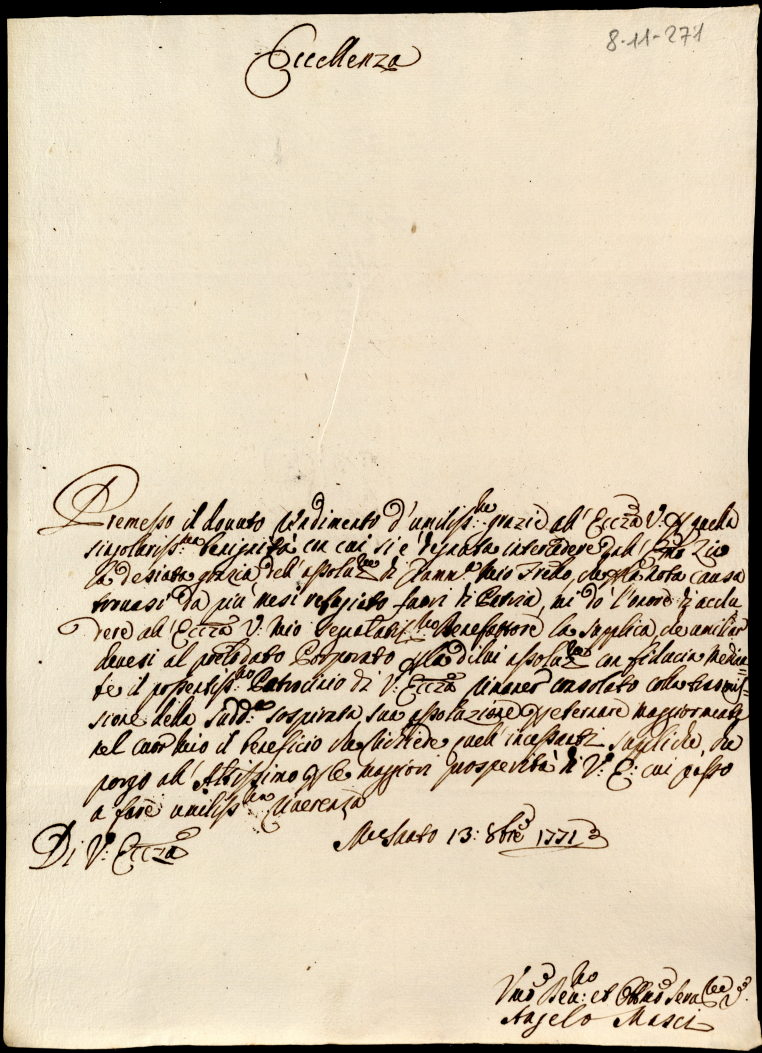 8-11-271
Eccellenza
Premesso il dovuto rendimento d'umiliss:me grazie all' Eccza V: p quella
singolariss:ma benignità con cui si è degnata intercedere dall' Emo Zio
la desiata grazia dell' assoluzne di mio Frello, che p la nota causa
trovasi da più mesi refugiato fuori di Patria, mi dò l'onore di acclu
dere all' Eccza V: mio Benefattore la supplica, che umiliar
devesi al prelodato Porporato p la di lui assoluzne con fiducia media
te il possentiss:mo Patrocinio di V: Eccza rimaner consolato colla trasmis-
sione della sudd:a sospirata sua assoluzione, p eternare maggiormente
nel cuor mio il beneficio quell' incessanti suppliche, che
porgo all' Altissimo p le maggiori prosperità di V: E: cui passo
a fare umiliss:ma riverenza
Di V: Eccza
Mte Santo 13: 8bre 1771
Umo Devmo: et Obblmo Servre V:
Angelo Masci